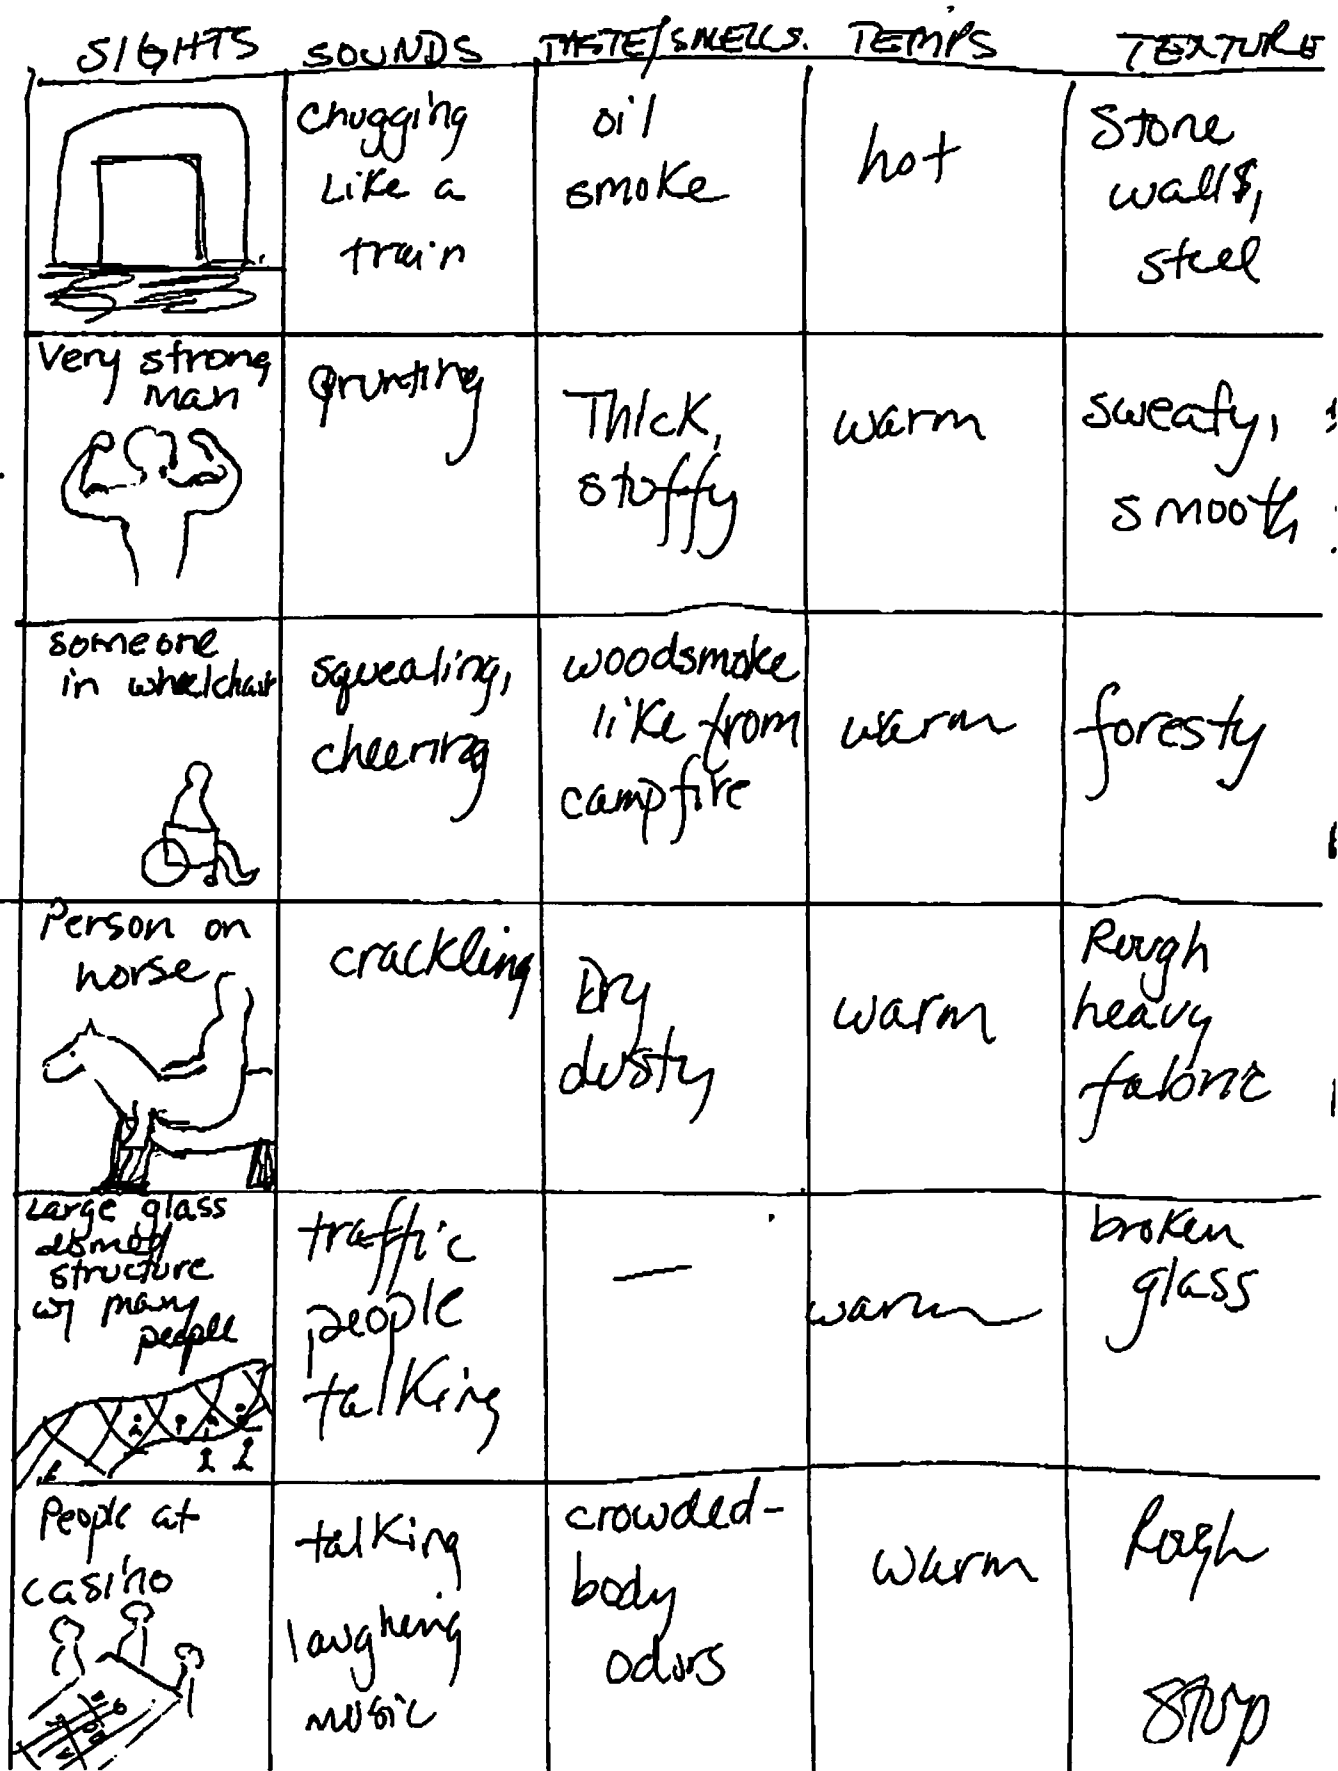 SIGHTS SOUNDS TASTE/SMELLS. TEMPS TEXTURE
chugging
like a
train
oil
smoke
hot
Stone
walls,
steel
Very strong
man
grunting
Thick,
stuffy
warm
sweaty,
smooth
someone
in wheelchair
squealing,
cheering
woodsmoke
like from
campfire
warm
foresty
Person on
horse
crackling
Dry
dusty
warm
Rough
heavy
fabric
Large glass
domed
structure
w/ many
people
traffic
people
talking
—
warm
broken
glass
People at
casino
talking
laughing
music
crowded-
body
odors
warm
Rough
Stop